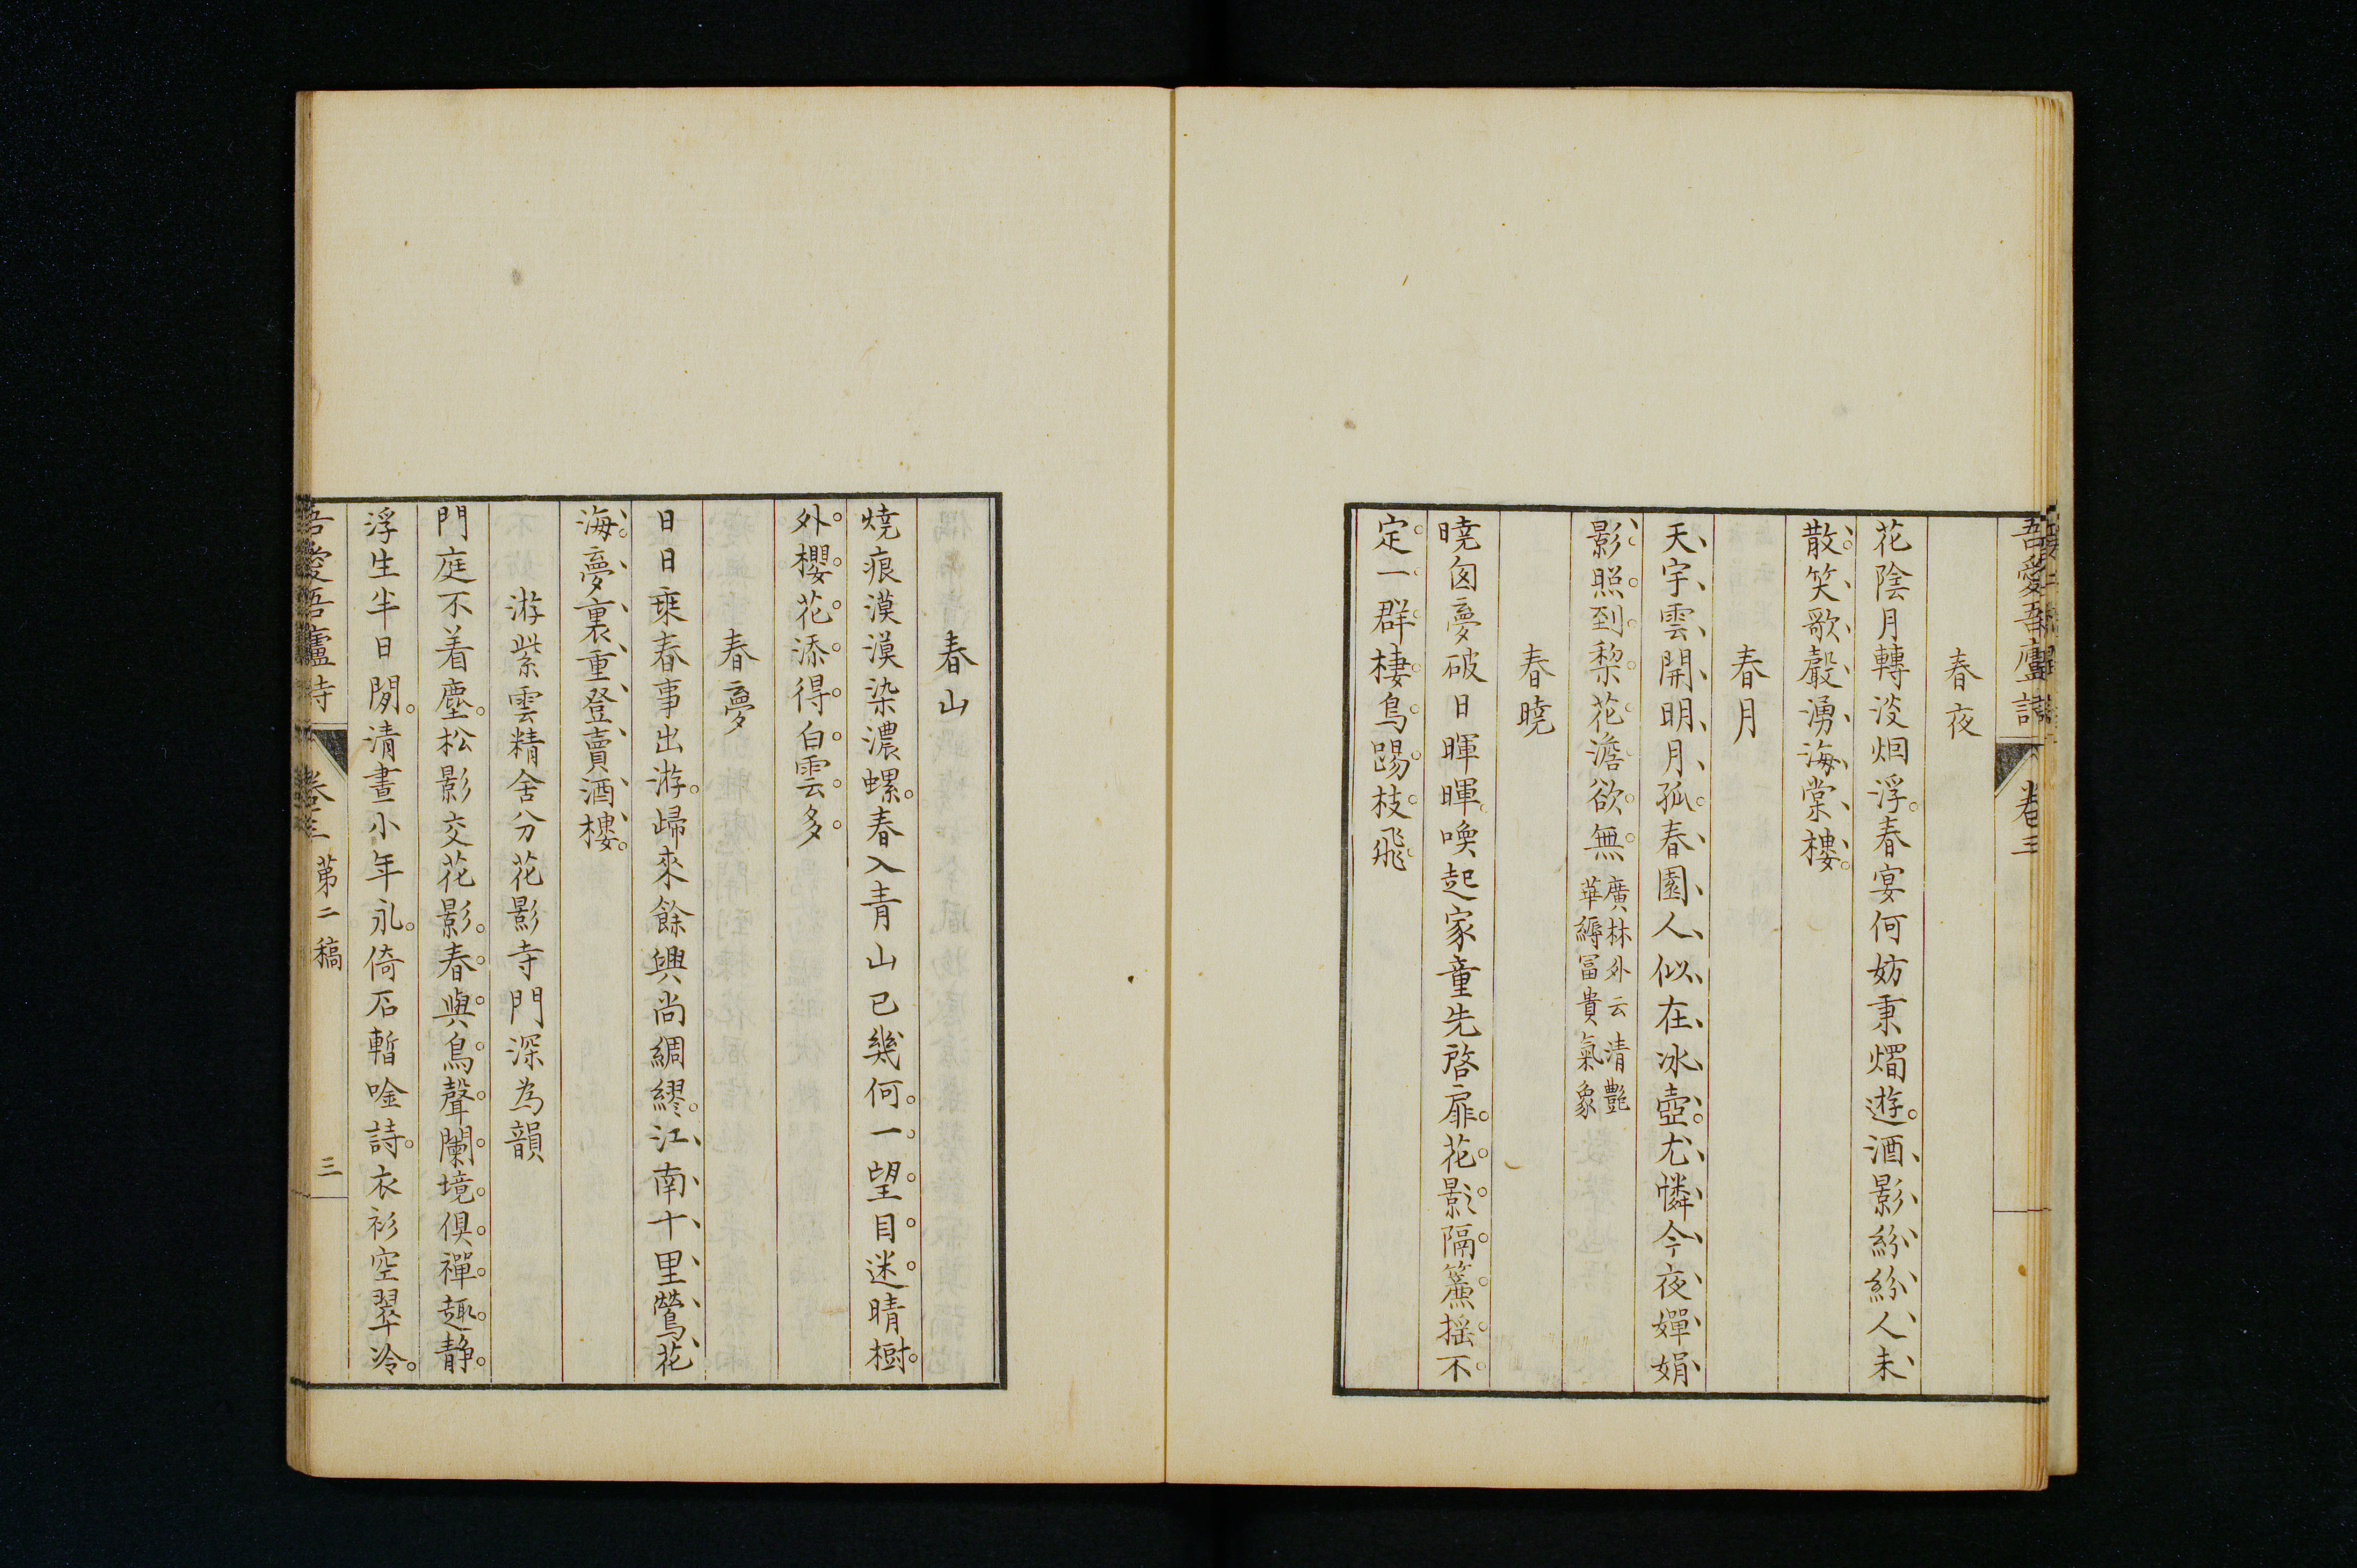 吾愛吾廬詩 卷三
春夜
花陰月轉淡烟浮春宴何妨秉燭遊酒影紛紛人未
散笑歌聲湧海棠樓
春月
天宇雲開明月孤春園人似在冰壺尤憐今夜嬋娟
影照到梨花澹欲無
廣林外云清艷
華縟冨貴氣象
春曉
曉囱夢破日暉暉喚起家童先啓扉花影隔簾揺不
定一群棲鳥踢枝飛
春山
燒痕漠漠染濃螺春入青山已幾何一望目迷晴樹
外櫻花添得白雲多
春夢
日日乗春事出游歸來餘興尚綢繆江南十里鶯花
海夢裏重登賣酒樓
游紫雲精舍分花影寺門深為韻
門庭不着塵松影交花影春與鳥聲闌境俱禪趣静
浮生半日閒清晝小年永倚石暫唫詩衣衫空翠冷
吾愛吾廬詩 卷三 第二稿 三